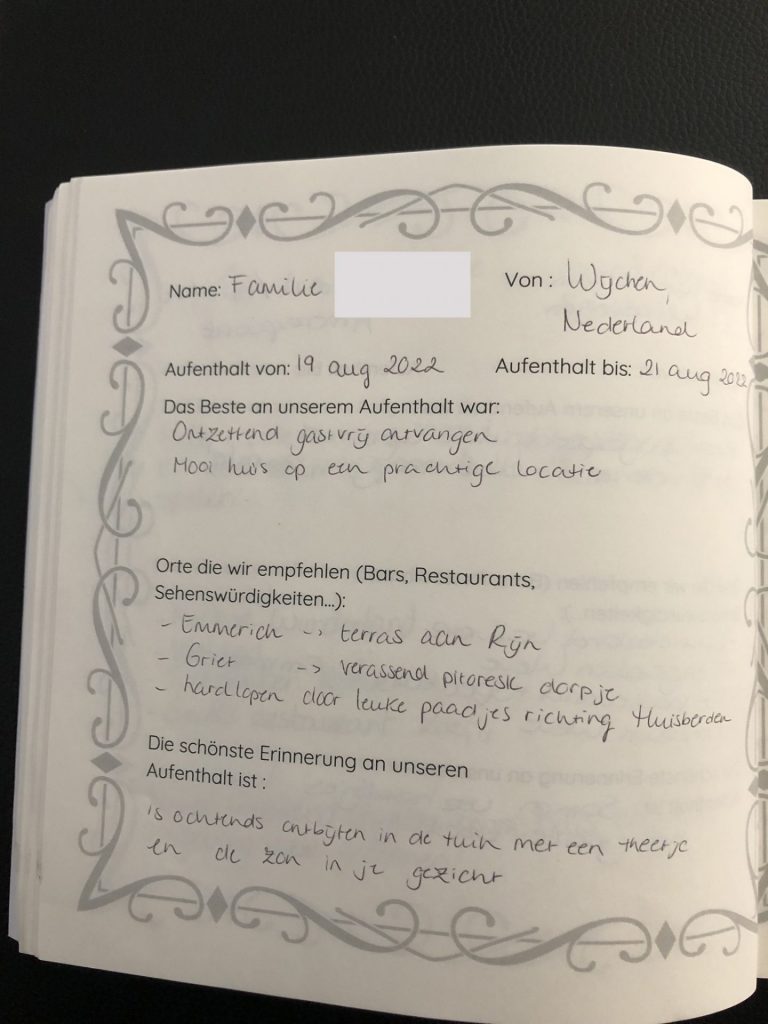 Name: Familie
Von: Wijchen,
Nederland
Aufenthalt von: 19 aug 2022
Aufenthalt bis: 21 aug 2022
Das Beste an unserem Aufenthalt war:
Ontzettend gastvrij ontvangen
Mooi huis op een prachtige locatie
Orte die wir empfehlen (Bars, Restaurants,
Sehenswürdigkeiten...):
- Emmerich -> terras aan Rijn
- Griet -> verassend pitoresk dorpje
- hardlopen door leuke paadjes richting Huisberden
Die schönste Erinnerung an unseren
Aufenthalt ist :
's ochtends ontbijten in de tuin met een theetje
en de zon in je gezicht